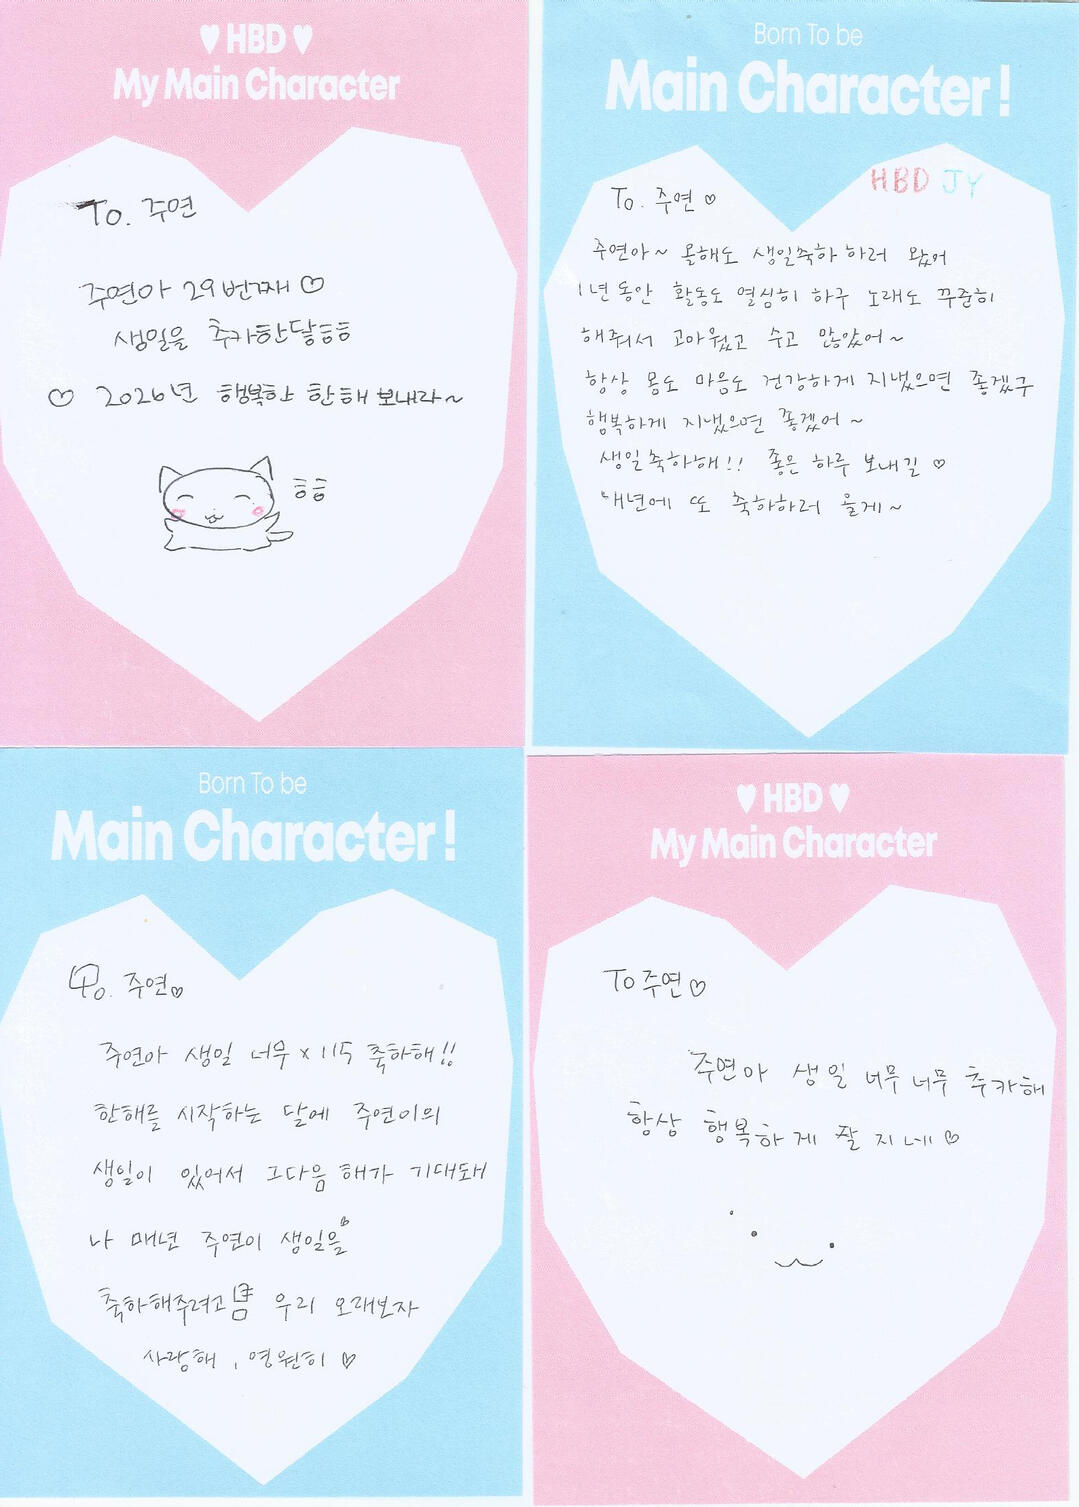 ♥ HBD ♥
My Main Character
To. 주연
주연아 29번째 ♡
생일을 추카한달ㅎㅎ
♡ 2026년 행복한 한해 보내라~
ㅎㅎ
Born To be
Main Character!
HBD JY
To. 주연 ♡
주연아~ 올해도 생일축하 하러 왔어
1년동안 활동도 열심히 하구 노래도 꾸준히
해줘서 고마웠고 수고 많았어~
항상 몸도 마음도 건강하게 지냈으면 좋겠구
행복하게 지냈으면 좋겠어~
생일축하해!! 좋은 하루 보내길 ♡
내년에 또 축하하러 올게~
Born To be
Main Character!
To. 주연♡
주연아 생일 너무 x 115 축하해!!
한해를 시작하는 달에 주연이의
생일이 있어서 그다음 해가 기대돼
나 매년 주연이 생일을
축하해주려고 우리 오래보자
사랑해, 영원히 ♡
♥ HBD ♥
My Main Character
To 주연♡
주연아 생일 너무너무 추카해
항상 행복하게 잘 지내♡